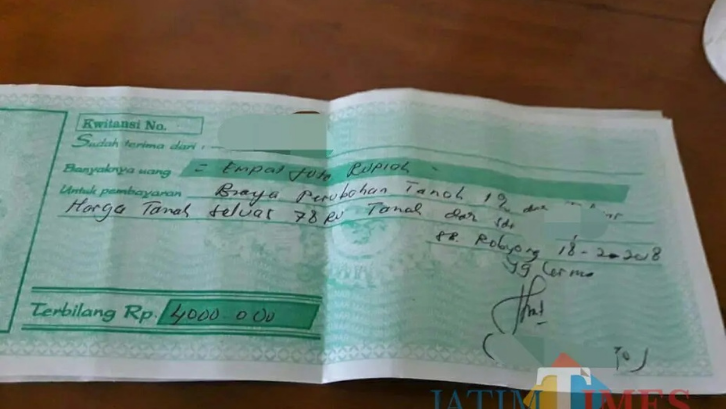 Kwitansi No.
Sudah terima dari :
Banyaknya uang = Empat Juta Rupiah =
Untuk pembayaran Biaya Perubahan Tanah 1%
Harga Tanah seluas 78 RU Tanah dar sdr
18-2-2018
yg terima
Terbilang Rp. 4000 000
JATIM TIMES